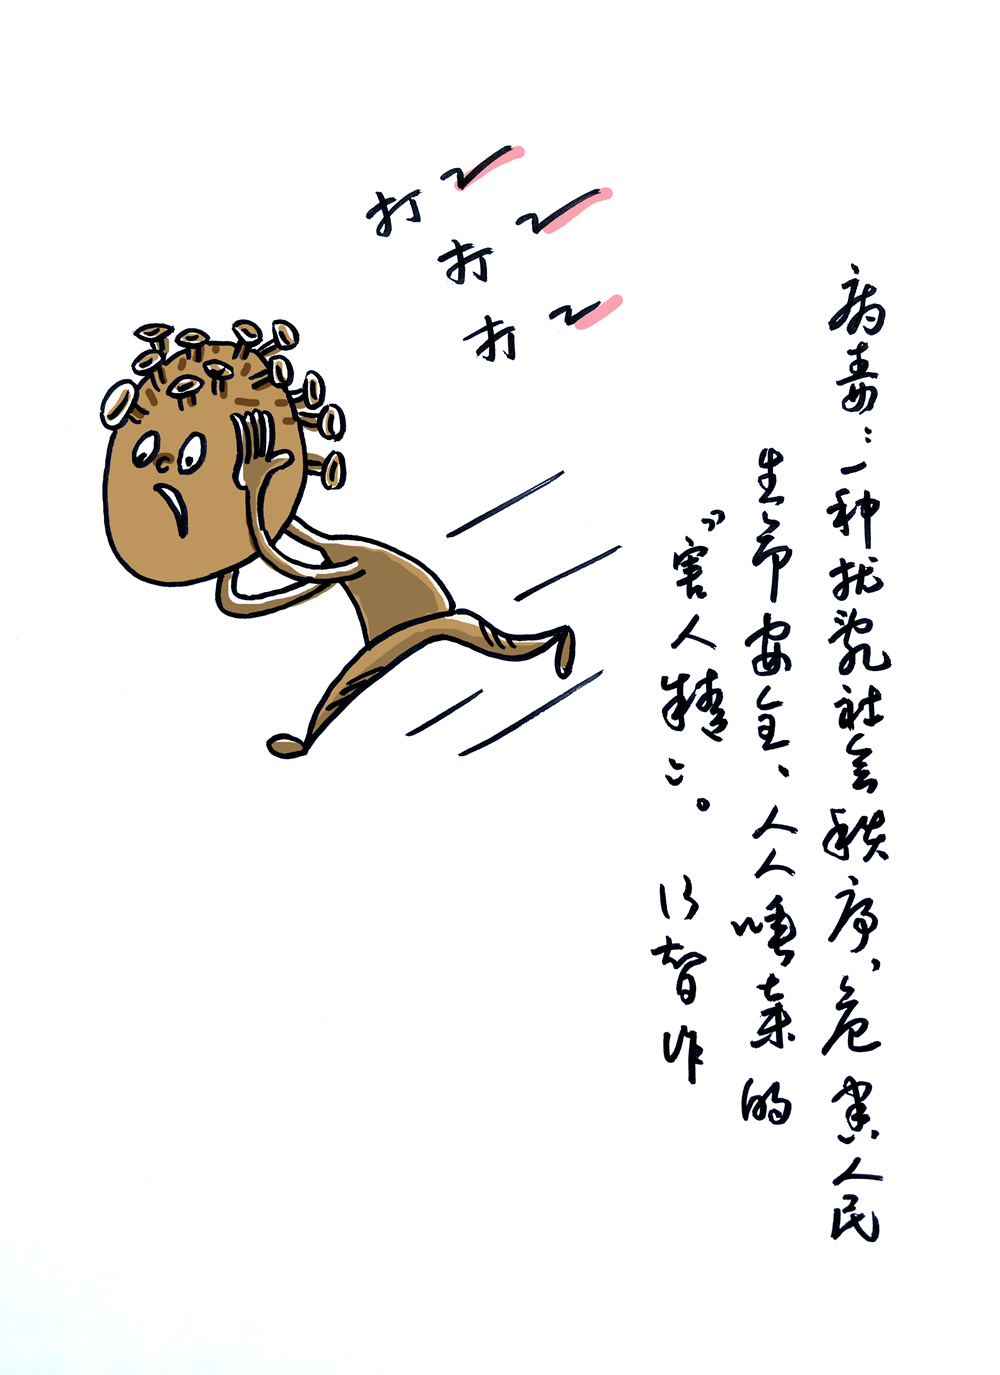 打
打
打
病毒：一种扰乱社会秩序、危害人民
生命安全、人人唾弃的
“害人精”。 智作